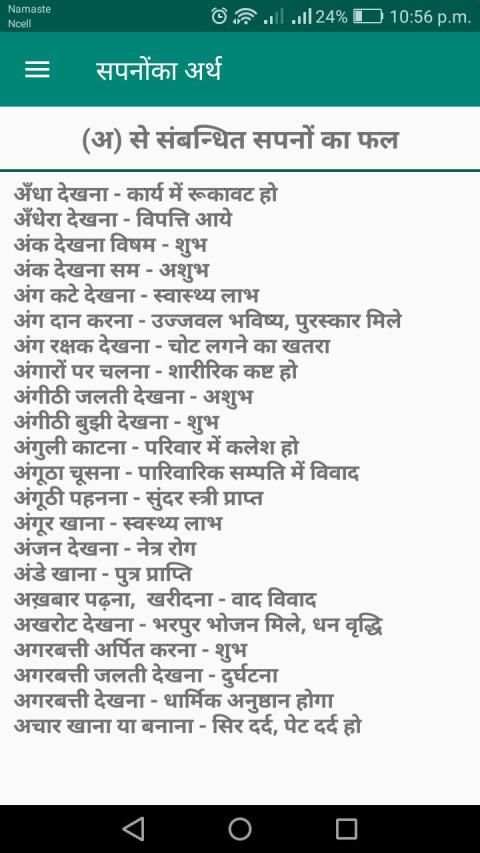 Namaste
Ncell
24% 10:56 p.m.
सपनोंका अर्थ
(अ) से संबन्धित सपनों का फल
अँधा देखना - कार्य में रूकावट हो
अँधेरा देखना - विपत्ति आये
अंक देखना विषम - शुभ
अंक देखना सम - अशुभ
अंग कटे देखना - स्वास्थ्य लाभ
अंग दान करना - उज्जवल भविष्य, पुरस्कार मिले
अंग रक्षक देखना - चोट लगने का खतरा
अंगारों पर चलना - शारीरिक कष्ट हो
अंगीठी जलती देखना - अशुभ
अंगीठी बुझी देखना - शुभ
अंगुली काटना - परिवार में कलेश हो
अंगूठा चूसना - पारिवारिक सम्पति में विवाद
अंगूठी पहनना - सुंदर स्त्री प्राप्त
अंगूर खाना - स्वस्थ्य लाभ
अंजन देखना - नेत्र रोग
अंडे खाना - पुत्र प्राप्ति
अख़बार पढ़ना, खरीदना - वाद विवाद
अखरोट देखना - भरपुर भोजन मिले, धन वृद्धि
अगरबत्ती अर्पित करना - शुभ
अगरबत्ती जलती देखना - दुर्घटना
अगरबत्ती देखना - धार्मिक अनुष्ठान होगा
अचार खाना या बनाना - सिर दर्द, पेट दर्द हो